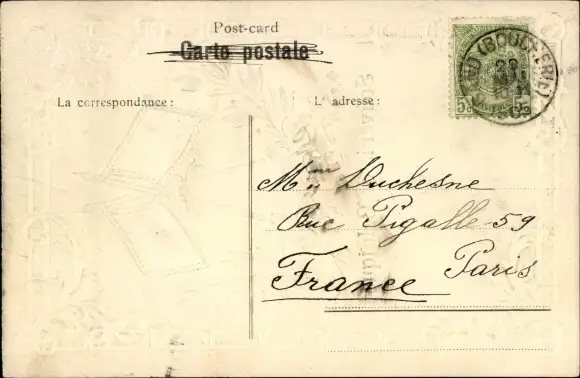 Post-card
Carto postale
La correspondance:
L' adresse:
Mme Duchesne
Rue Pigalle 59
Paris
France